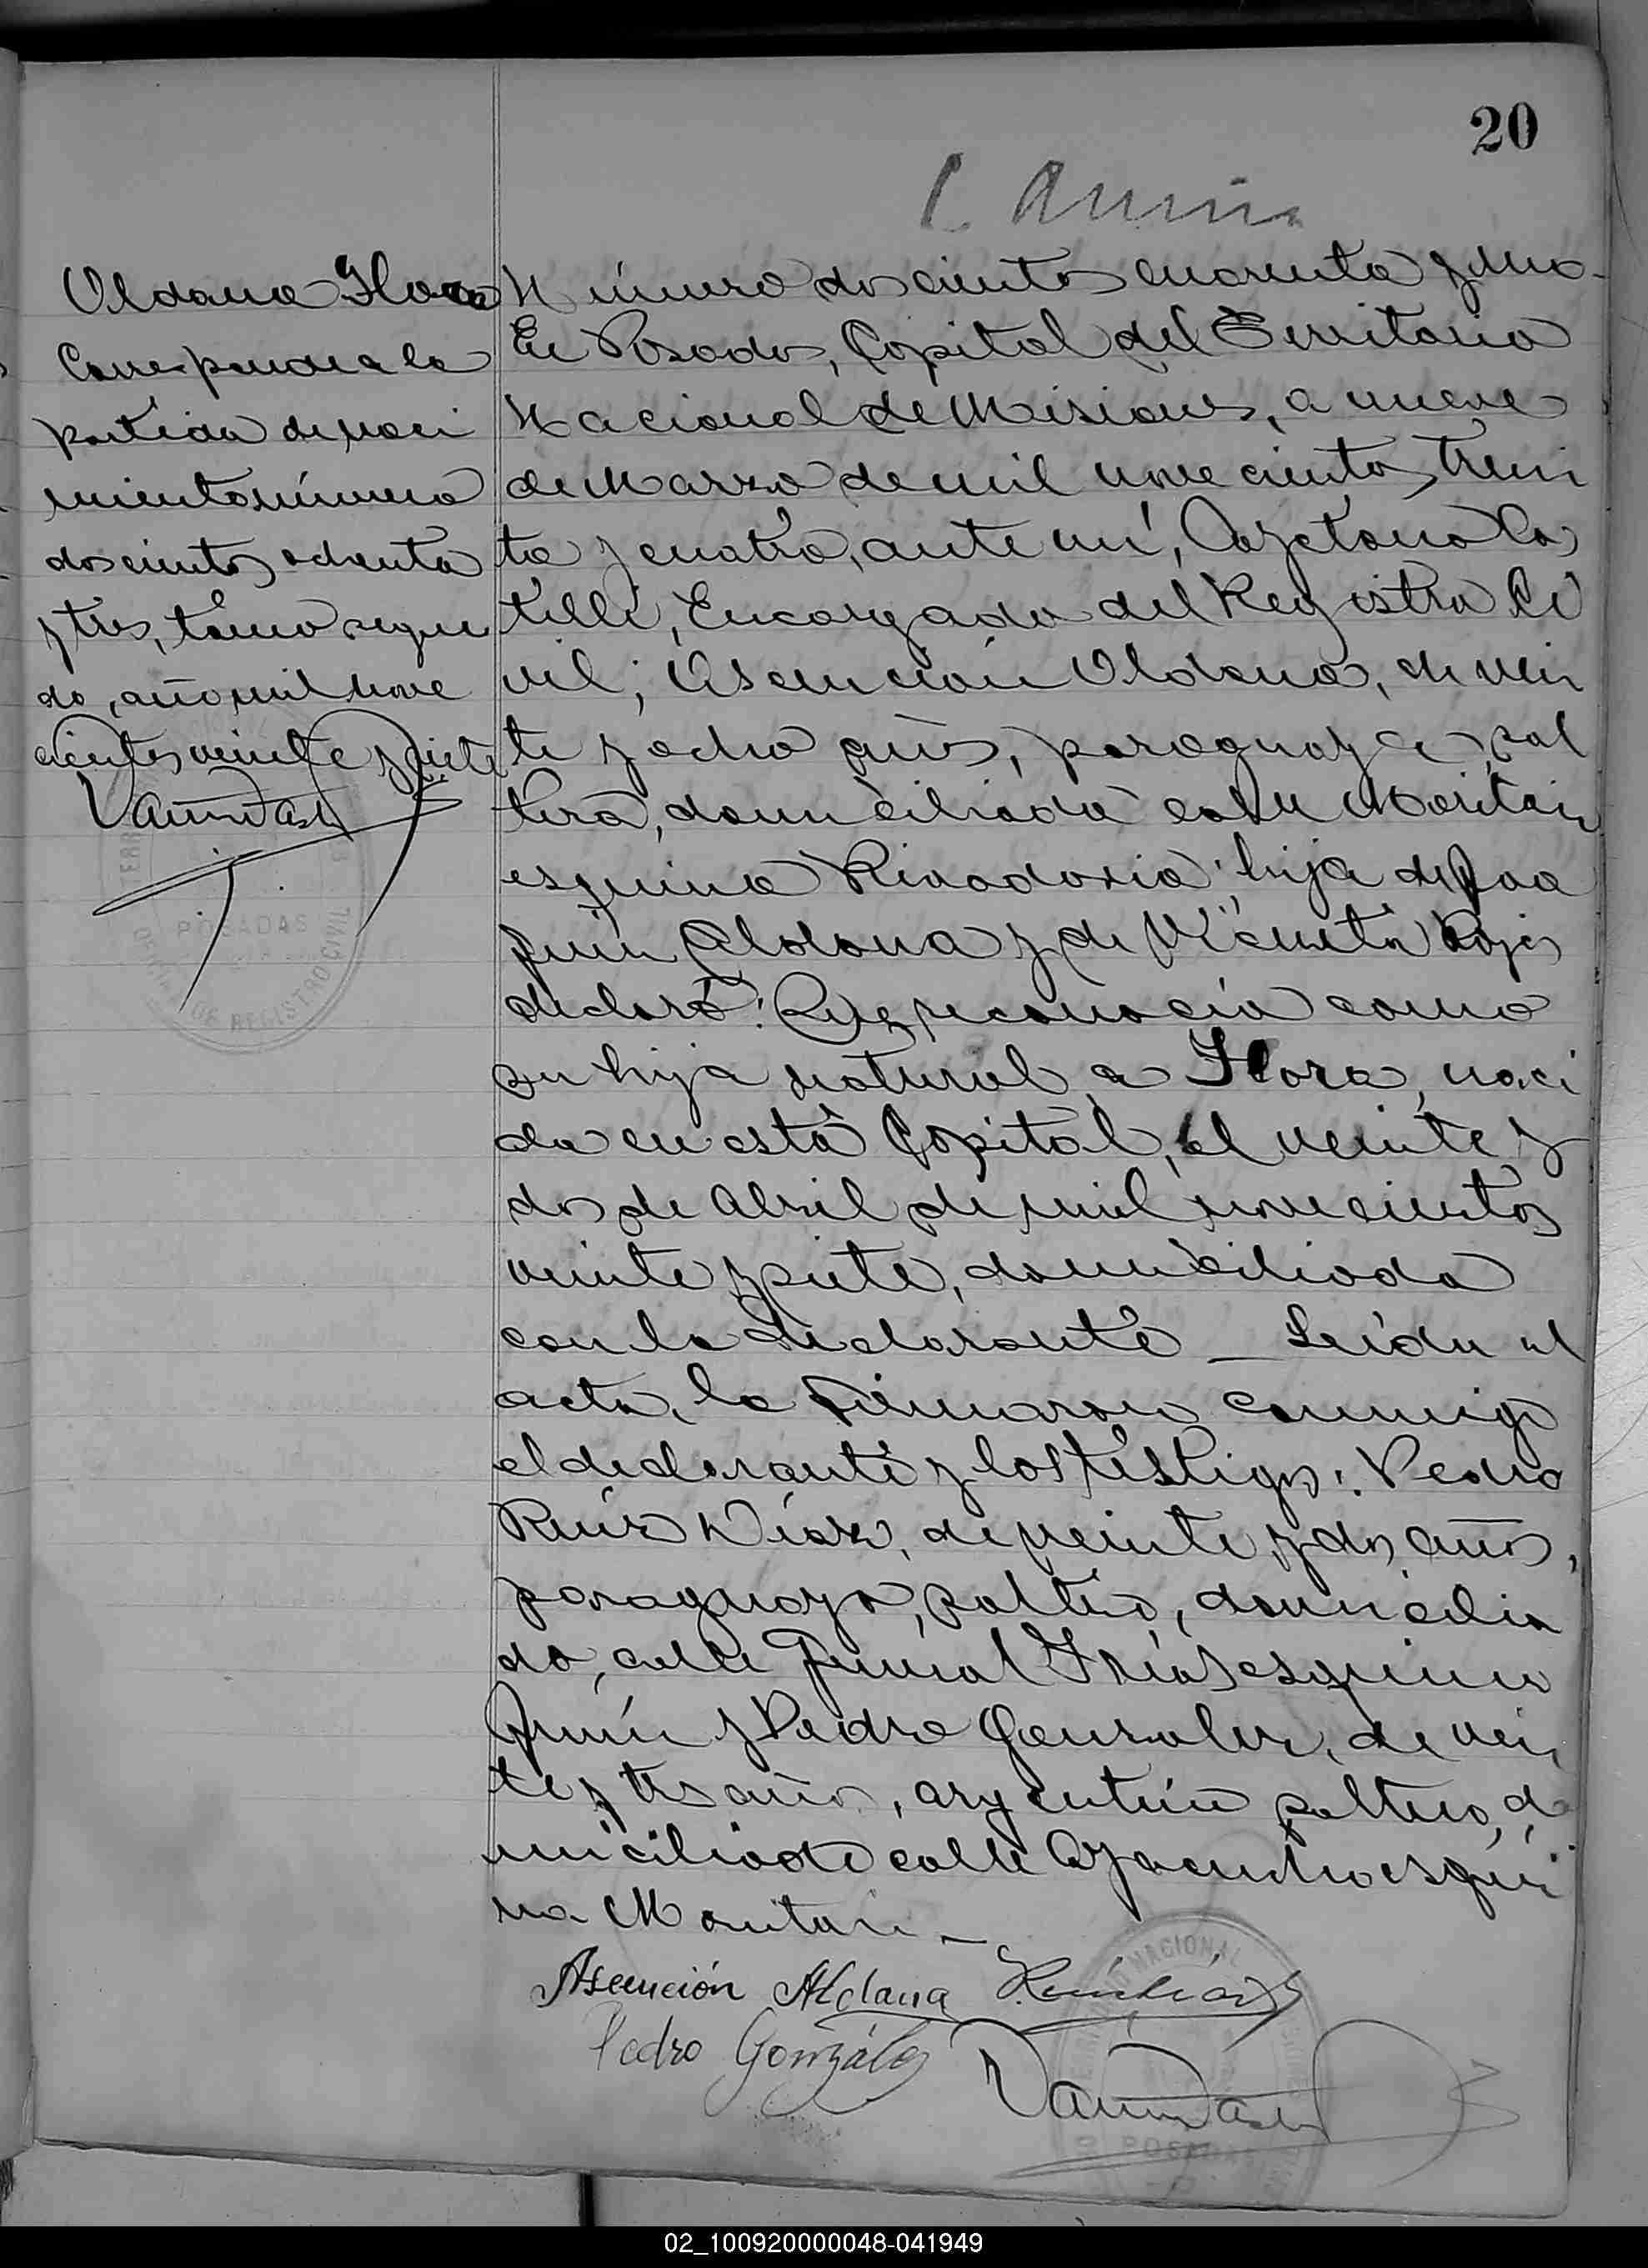 20
Aldana Flora
Corresponde a la
partida de naci
miento número
doscientos ochenta
y tres, tomo segun
do, año mil nove
cientos veinte y siete
POSADAS
DE REGISTRO CIVIL
Número doscientos cuarenta y uno-
En Posadas, Capital del Territorio
Nacional de Misiones, a nueve
de Marzo de mil novecientos trein
ta y cuatro, ante mí, Cayetano Cas
telli, Encargado del Registro Ci
vil; Asención Aldana, de vein
te y ocho años, paraguaya, sol
tera, domiciliada calle
esquina Rivadavia, hija de Joa
quín Aldana y de Vicenta Rojas
declaró: Que reconocía como
su hija natural a Flora, naci
da en esta Capital, el veinte y
dos de Abril de mil novecientos
veinte y siete, domiciliada
con la declarante — Leída el
acta, la firmaron conmigo
el declarante y los testigos: Pedro
Ruíz Díaz, de veinte y dos años,
paraguayo, soltero, domicilia
do, calle General Frías esquina
Junín y Pedro Gonzalez, de vein
te y tres años, argentino soltero, do
miciliado calle Ayacucho esqui
na
Asención Aldana P. Ruíz Díaz
Pedro González
NACIONAL
POSADAS
02_100920000048-041949